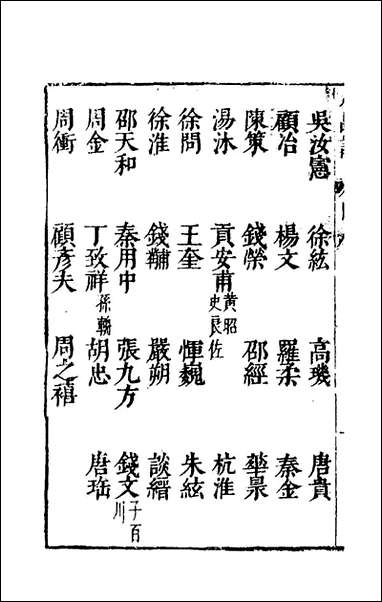 吳汝憲 徐紘 高璣 唐貴
顧冶 楊文 羅柔 秦金
陳策 錢榮 邵經 華㫤
湯沐 貢安甫 黄昭 史良佐 杭淮
徐問 王奎 惲巍 朱紘
徐淮 錢𪏆 嚴朔 談縉
邵天和 秦用中 張九方 錢文 子百川
周金 丁致祥 孫翰 胡忠 唐珤
周衝 顧彥夫 周之禧